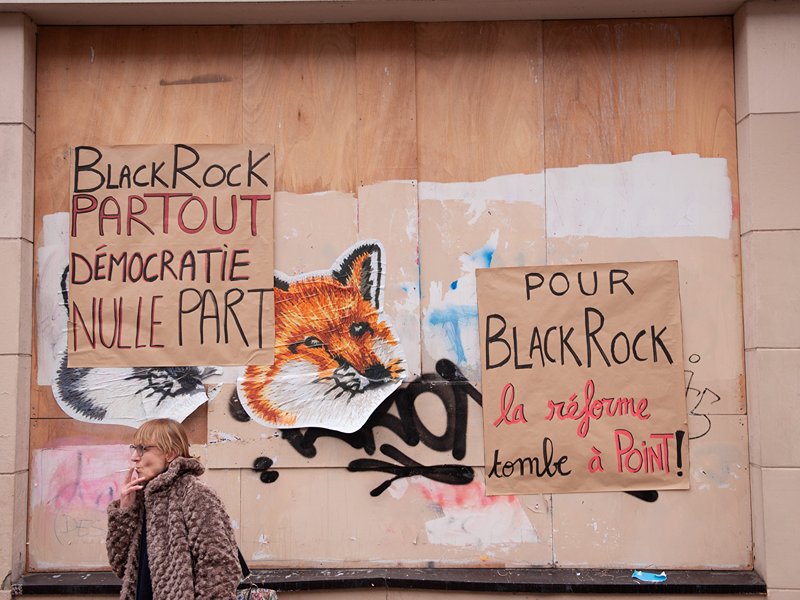 BLACKROCK
PARTOUT
DÉMOCRATIE
NULLE PART
POUR
BLACKROCK
la réforme
tombe à POINT!